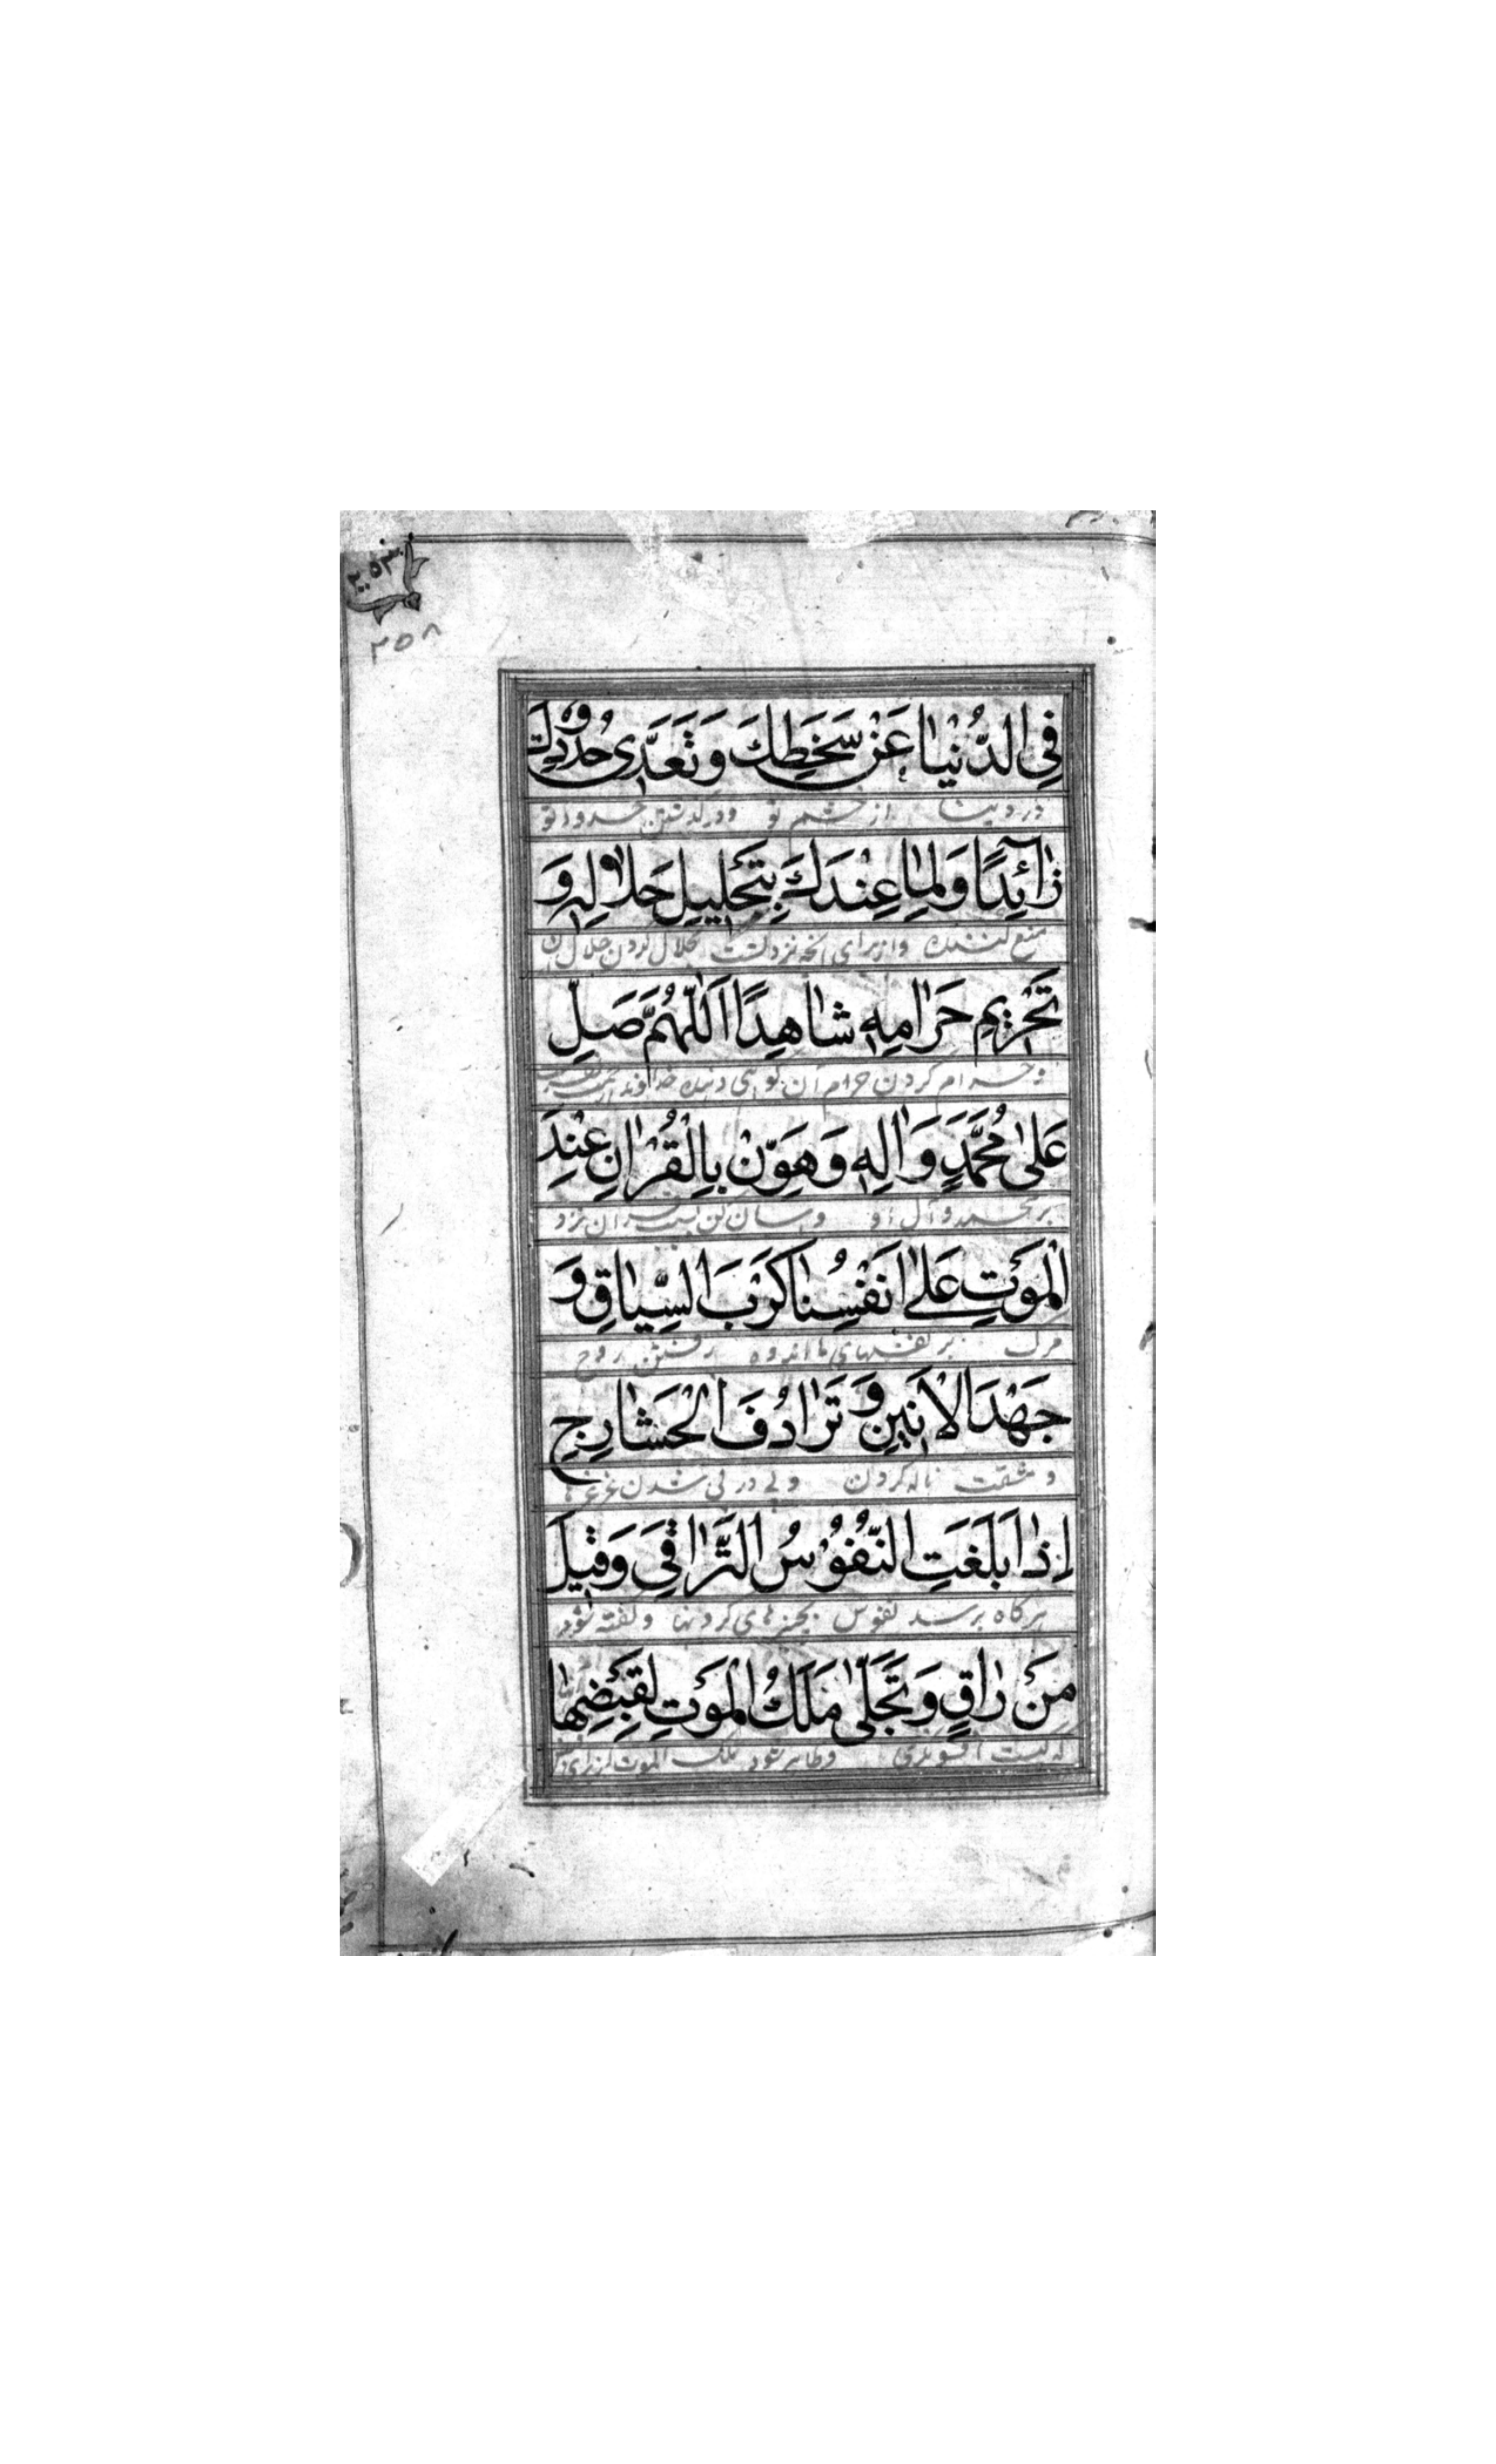 ۲۵۳
۲۵۸
فِي الدُّنْيٰا عَنْ سَخَطِكَ وَتَعَدّٰى حُدُودِكَ
در دنیا از خشم تو و درگذشتن حدود تو
ذٰآئِدًا وَلِمٰا عِنْدَكَ بِتَحْلِيلِ حَلاٰلِهِ وَ
منع کننده و از برای آنچه نزد تست بحلال کردن حلال آن
تَحْرِيمِ حَرٰامِهِ شٰاهِدًا اَللّٰهُمَّ صَلِّ
و حرام کردن حرام آن گواهی دهنده خداوندا رحمت بفرست
عَلىٰ مُحَمَّدٍ وَاٰلِهِ وَهَوِّنْ بِالْقُرْاٰنِ عِنْدَ
بر محمد و آل او و آسان کن بسبب قرآن نزد
الْمَوْتِ عَلىٰ اَنْفُسِنٰا كَرْبَ السِّيٰاقِ وَ
مرگ بر نفسهای ما اندوه رفتن روح
جَهْدَ الْاَنِينِ وَ تَرٰادُفَ الْحَشٰارِجِ
و مشقت ناله کردن و پی در پی شدن غرغرها
اِذٰا بَلَغَتِ النُّفُوْسُ التَّرٰاقِىَ وَقِيلَ
هرگاه برسد نفوس بچنبرهای گردنها و گفته شود
مَنْ رٰاقٍ وَتَجَلّٰى مَلَكُ الْمَوْتِ لِقَبْضِهٰا
که کیست افسونگری و ظاهر شود ملک الموت از برای